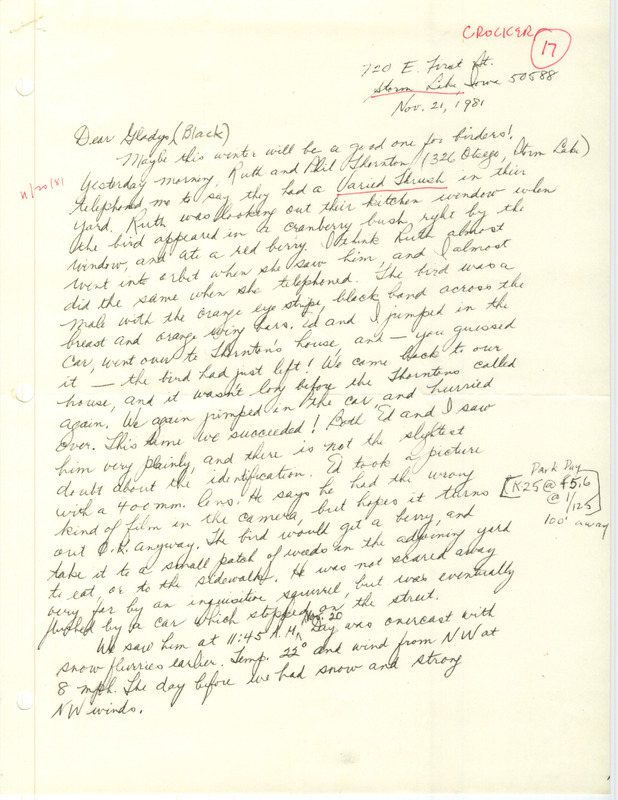 CROCKER 17
720 E. First St.
Storm Lake, Iowa 50588
Nov. 21, 1981
Dear Gladys, (Black)
Maybe this winter will be a good one for birders!
11/20/81
Yesterday morning, Ruth and Phil Thornton (1326 Otsego, Storm Lake)
telephoned me to say they had a Varied Thrush in their
yard. Ruth was looking out their kitchen window when
the bird appeared in a cranberry bush right by the
window, and ate a red berry. I think Ruth almost
went into orbit when she saw him, and I almost
did the same when she telephoned. The bird was a
male with the orange eye stripe, black band across the
breast and orange wing bars. Ed and I jumped in the
car, went over to Thornton's house, and — you guessed
it — the bird had just left! We came back to our
house, and it wasn't long before the Thorntons called
again. We again jumped in the car and hurried
over. This time we succeeded! Both Ed and I saw
him very plainly, and there is not the slightest
doubt about the identification. Ed took a picture
with a 400 mm. lens. He says he had the wrong
kind of film in the camera, but hopes it turns
out O.K. anyway. The bird would get a berry, and
take it to a small patch of weeds in the adjoining yard
to eat, or to the sidewalk. He was not scared away
very far by an inquisitive squirrel, but was eventually
flushed by a car which stopped on the street.
Dark Day
[K25 @ f5.6
@ 1/125]
100' away
We saw him at 11:45 A.M. Nov. 20 Day was overcast with
snow flurries earlier. Temp. 22° and wind from NW at
8 mph. The day before we had snow and strong
NW winds.